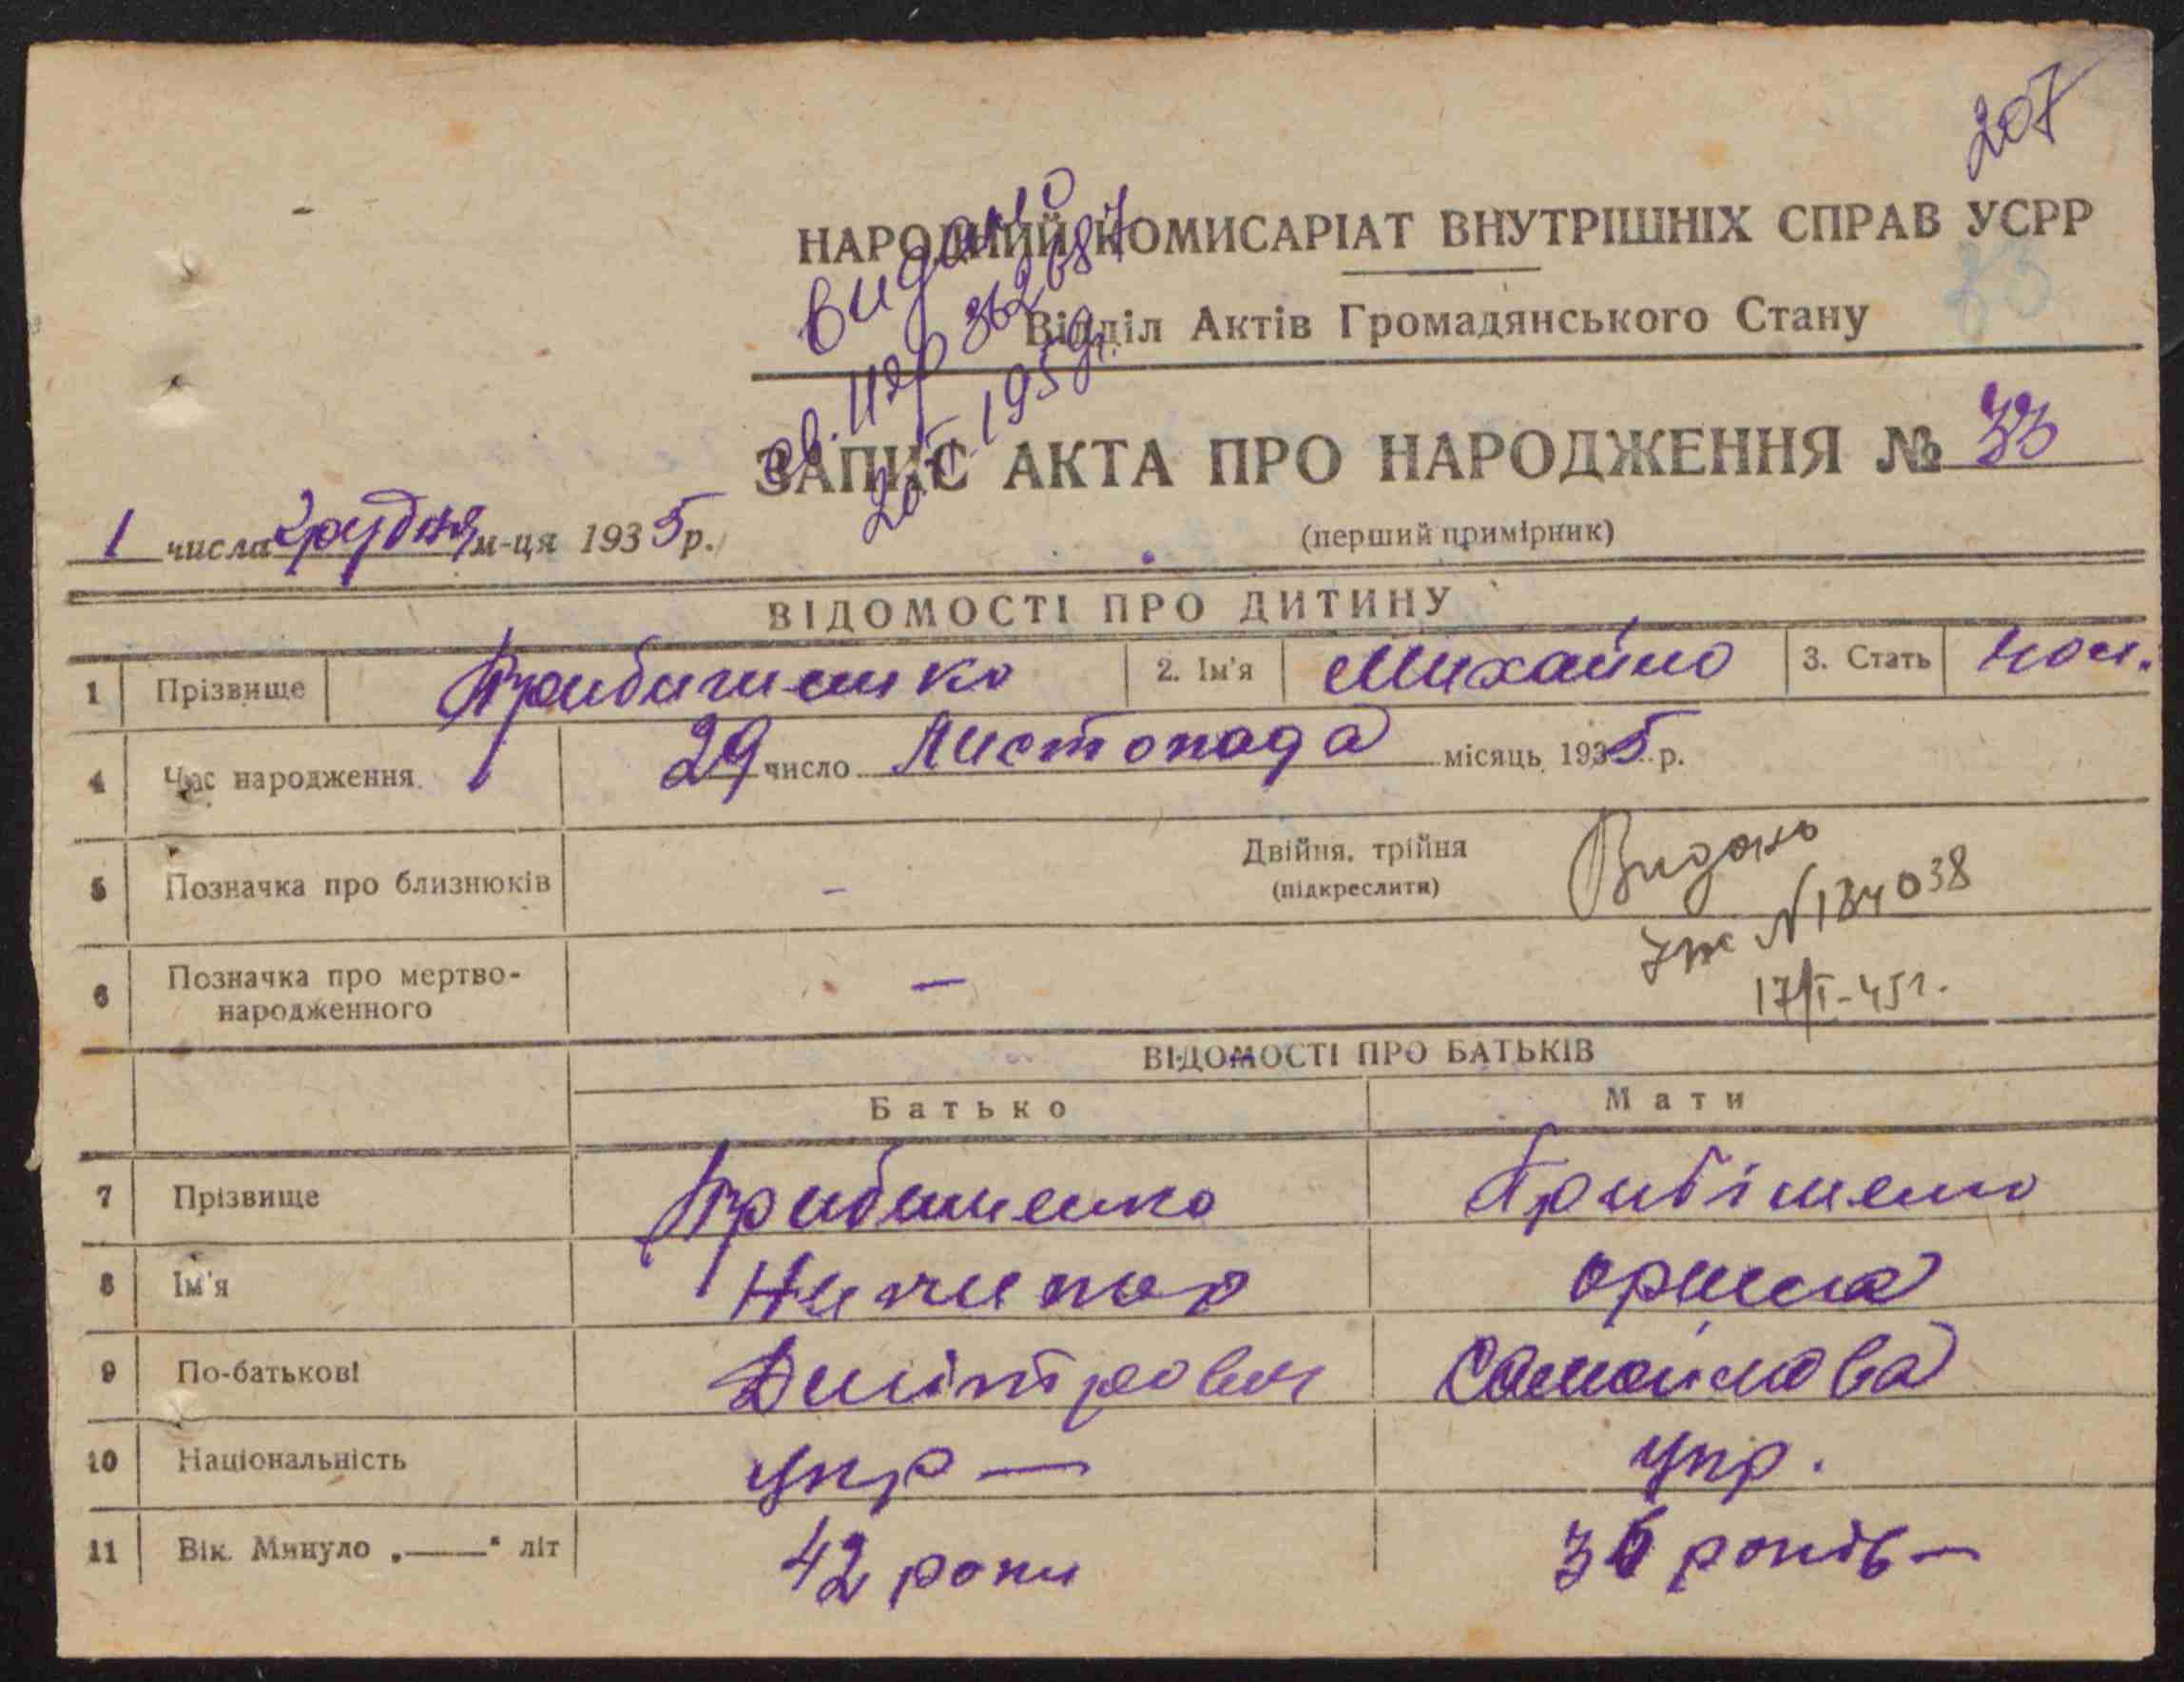 207
НАРОДНИЙ КОМИСАРІАТ ВНУТРІШНІХ СПРАВ УСРР
Відділ Актів Громадянського Стану
видано
362687
1959г.
ЗАПИС АКТА ПРО НАРОДЖЕННЯ № 33
(перший примірник)
1 числа грудня м-ця 1935 р.
ВІДОМОСТІ ПРО ДИТИНУ
1 Прізвище 2. Ім'я Михайло 3. Стать чол.
4 Час народження 29 число Листопада місяць 1935 р.
5 Позначка про близнюків – Двійня, трійня
(підкреслити)
6 Позначка про мертво-
народженного –
Видано
N 184038
17/I-45г.
ВІДОМОСТІ ПРО БАТЬКІВ
Батько Мати
7 Прізвище
8 Ім'я Ничипор орина
9 По-батькові Дмітрович Самойлова
10 Національність укр — укр.
11 Вік. Минуло „——" літ 42 роки 36 років —